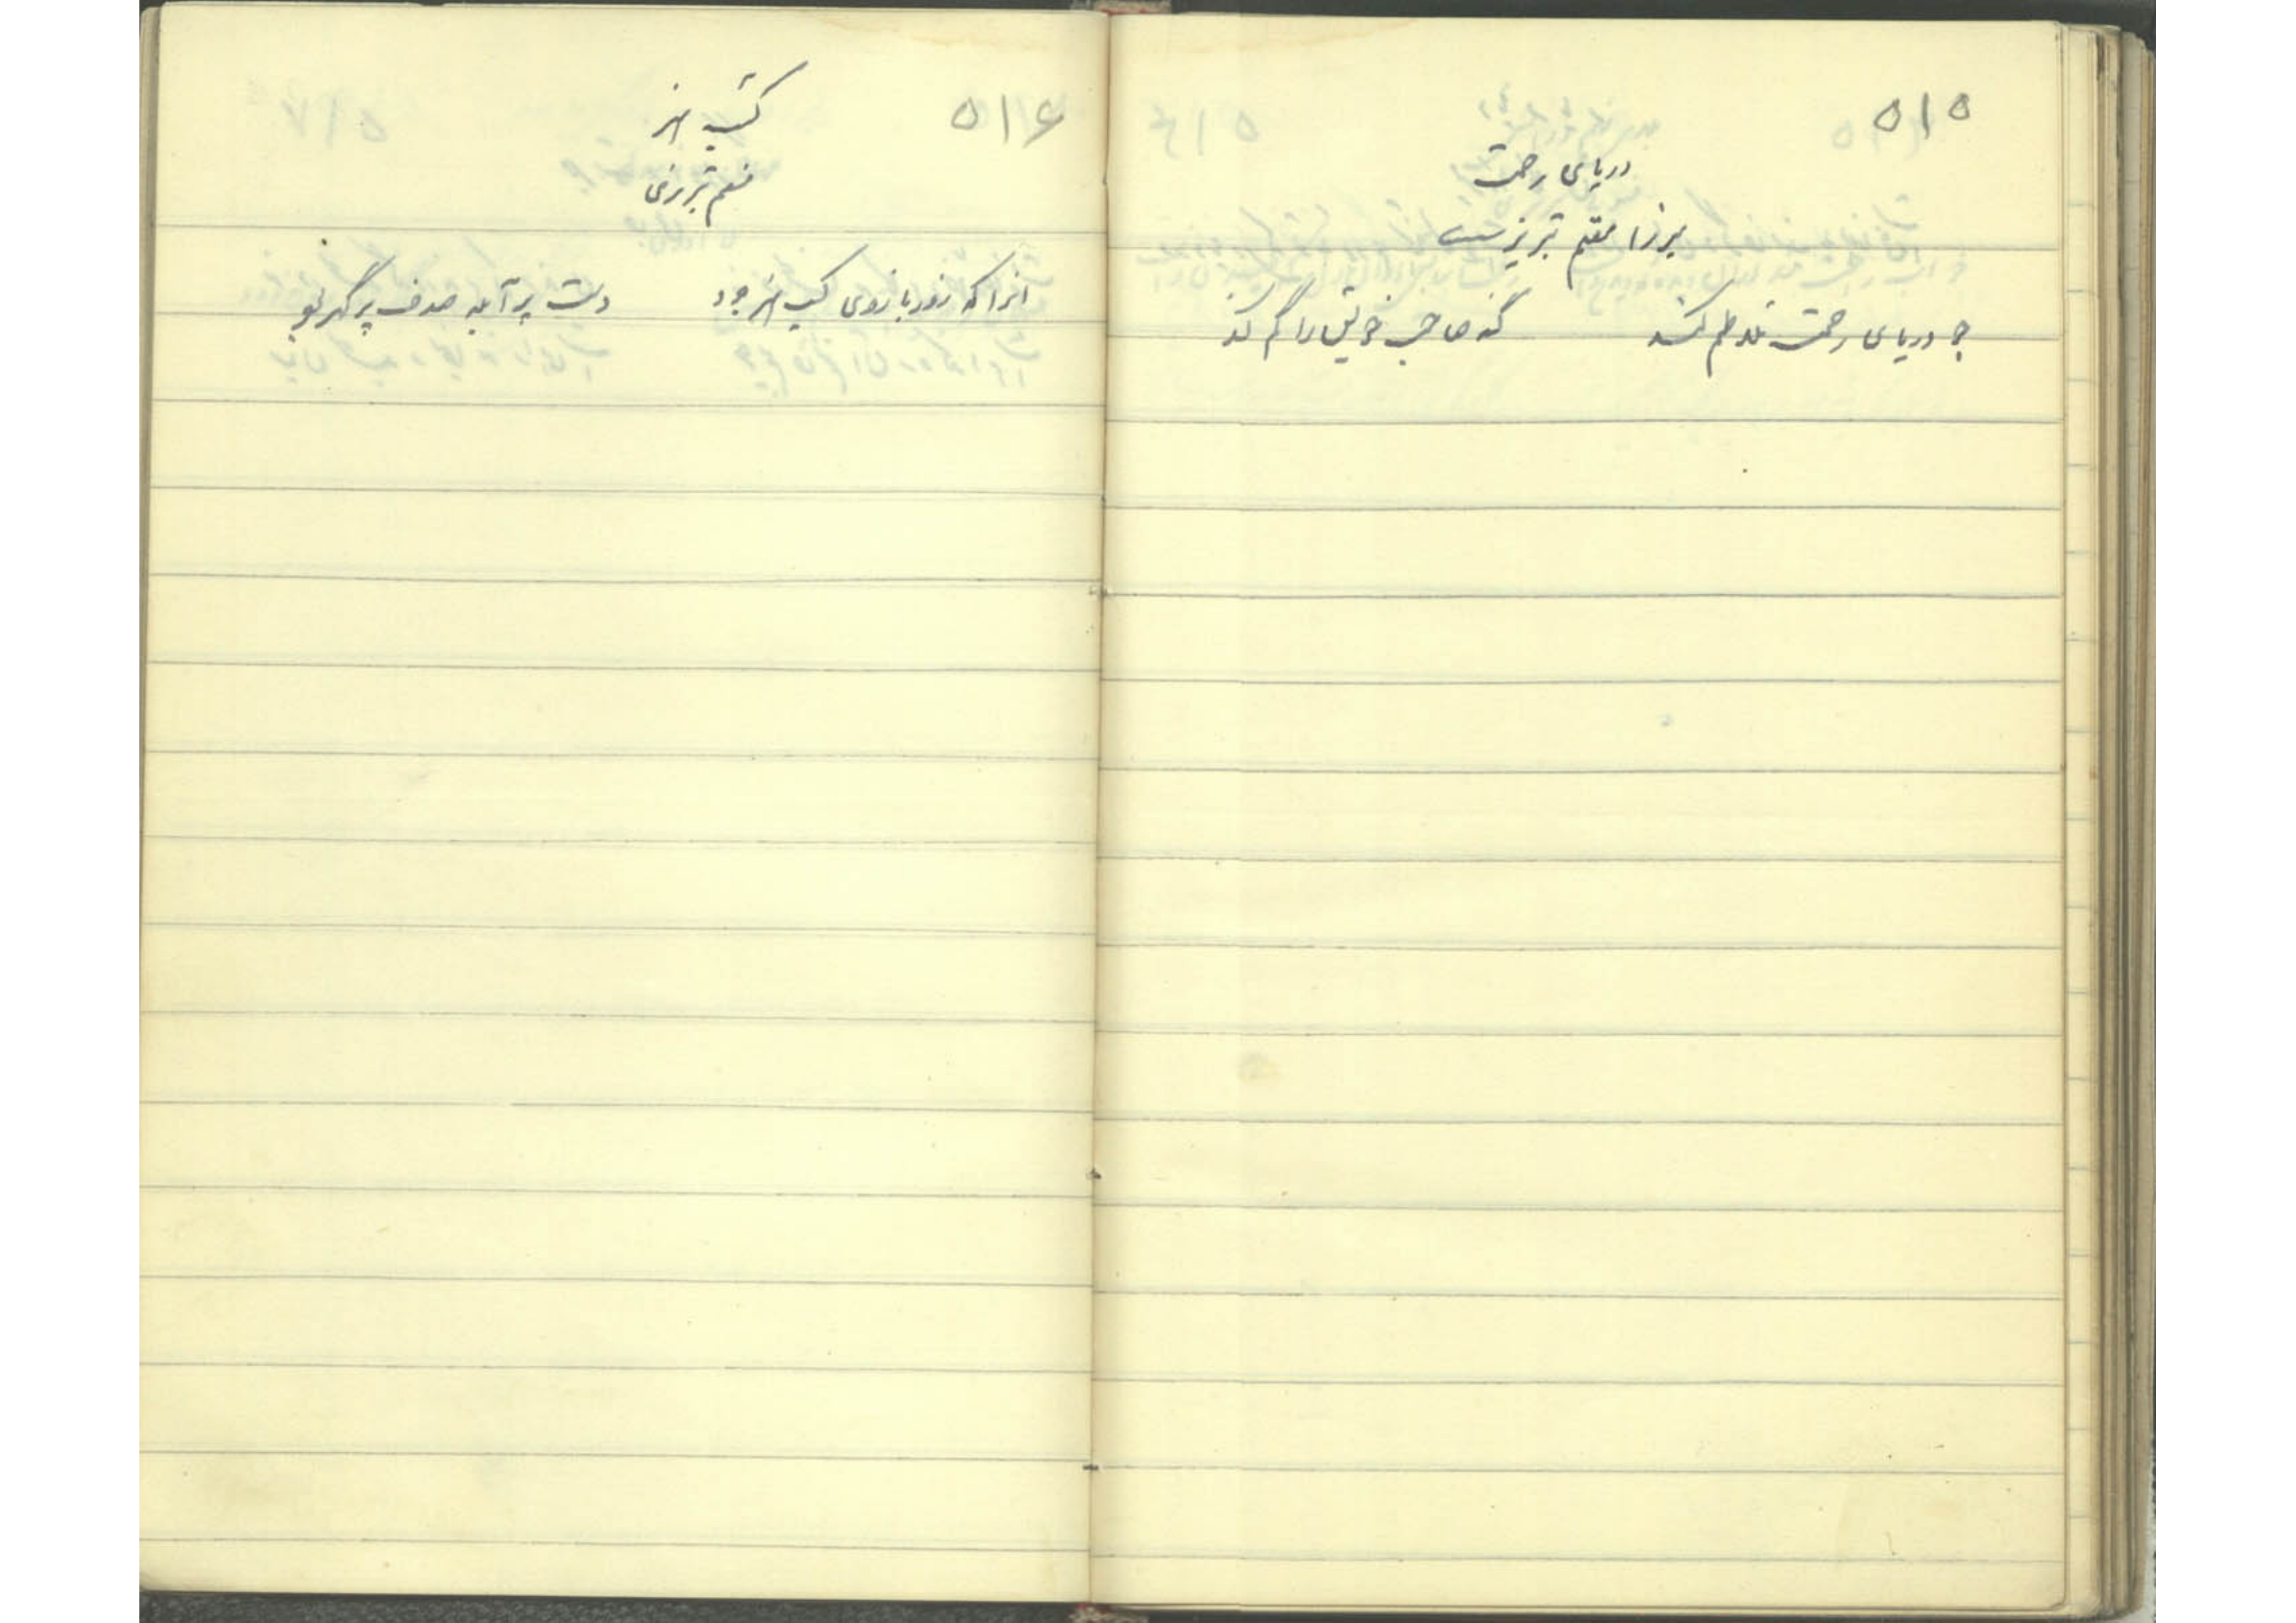 ۵۱۵
دریای رحمت
میرزا مقیم تبریزیست
چو دریای رحمت تلاطم کند گنه صاحب خویش را گم کند
۵۱۶
کسب هنر
مقیم تبریزی
آنرا که زور بازوی کسب هنر بود دست پر آبله صدف پر گهر بود